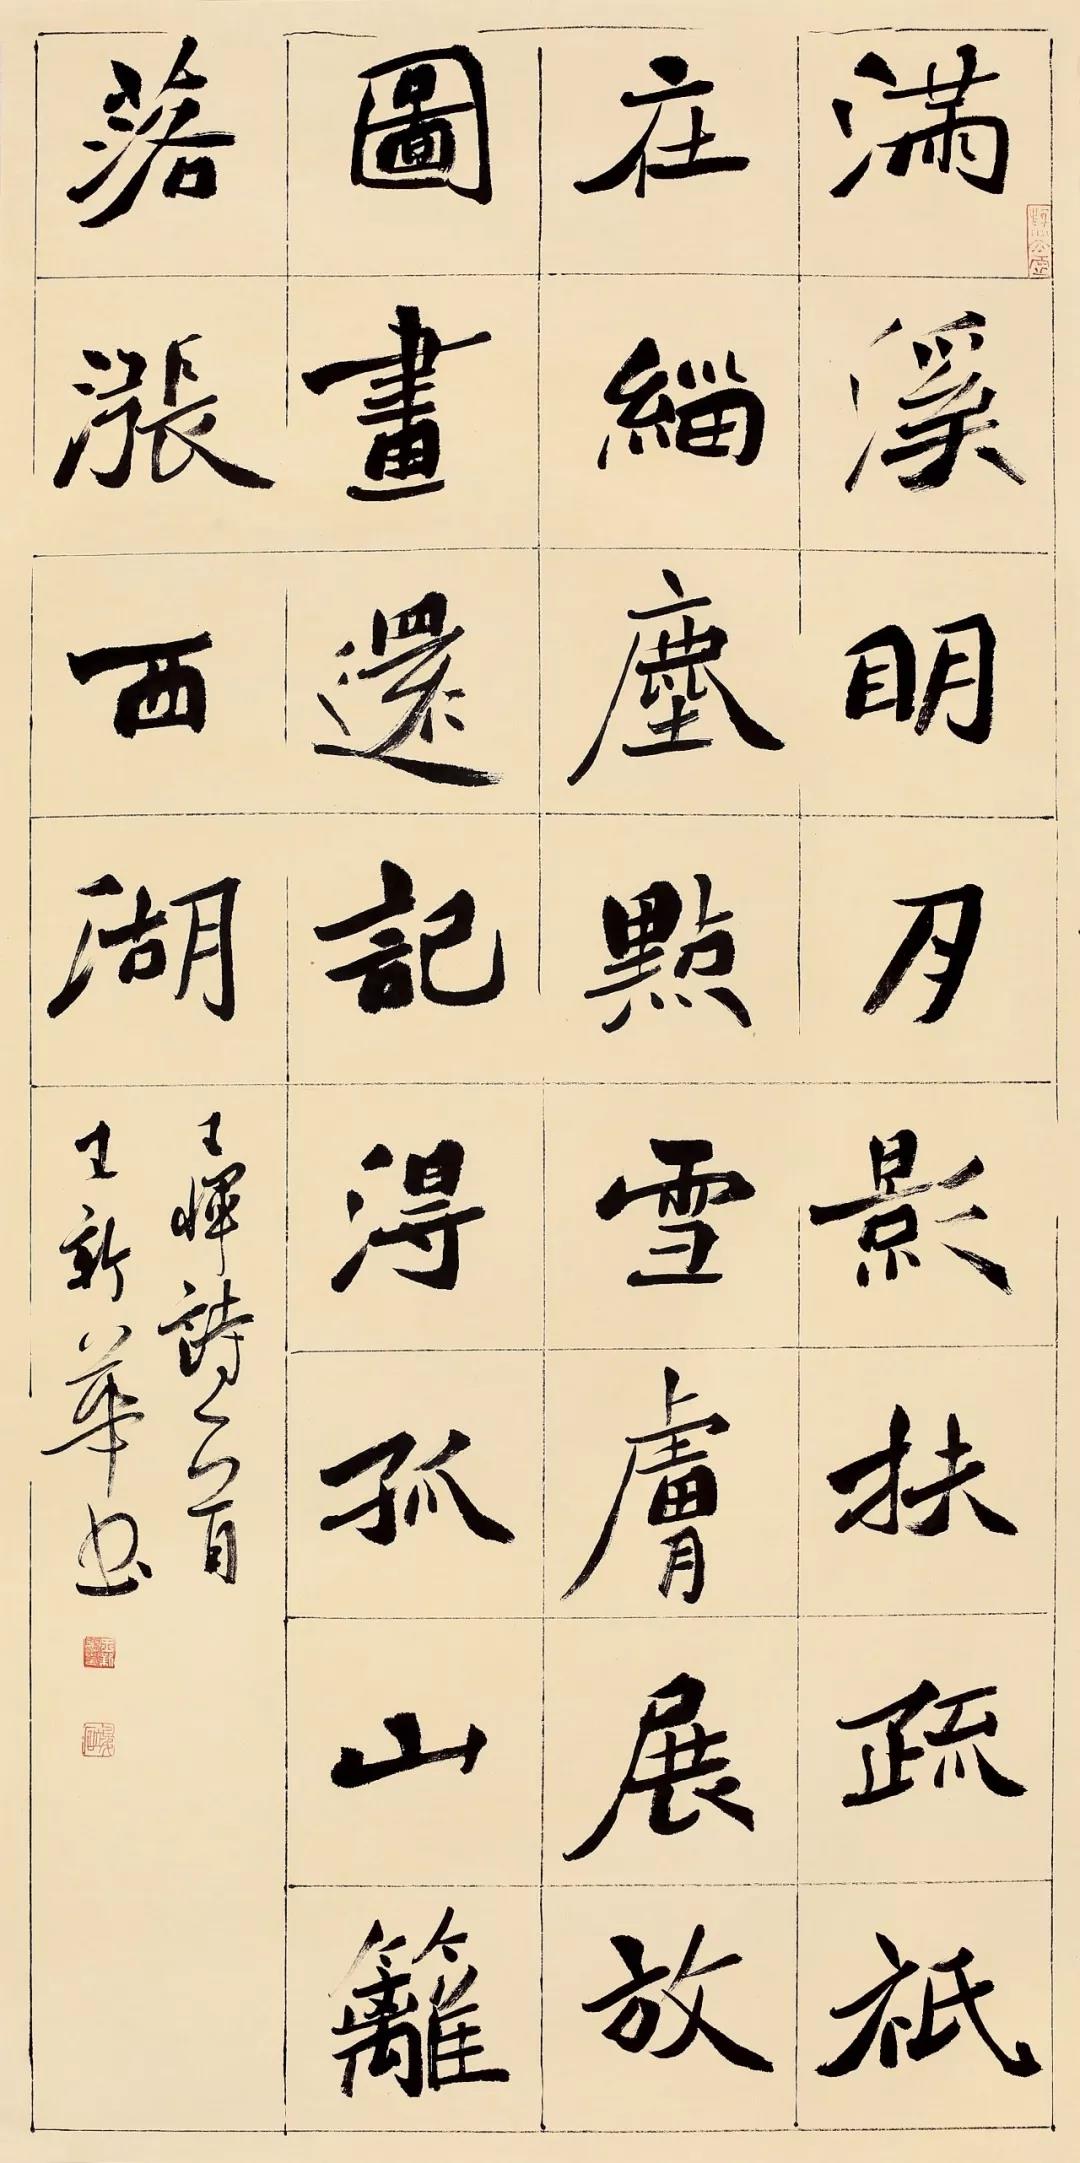 满溪明月影扶疏祇
在緇塵點雪膚展放
圖畫還記得孤山籬
落漲西湖
王惲詩一首
王新華书